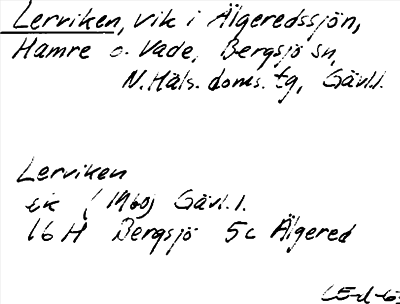 Lerviken, vik i Älgeredssjön,
Hamre o. Vade, Bergsjö sn,
N. Häls. doms. tg, Gävl.l.
Lerviken
ek (1960) Gävl.l.
16 H Bergsjö 5c Älgered